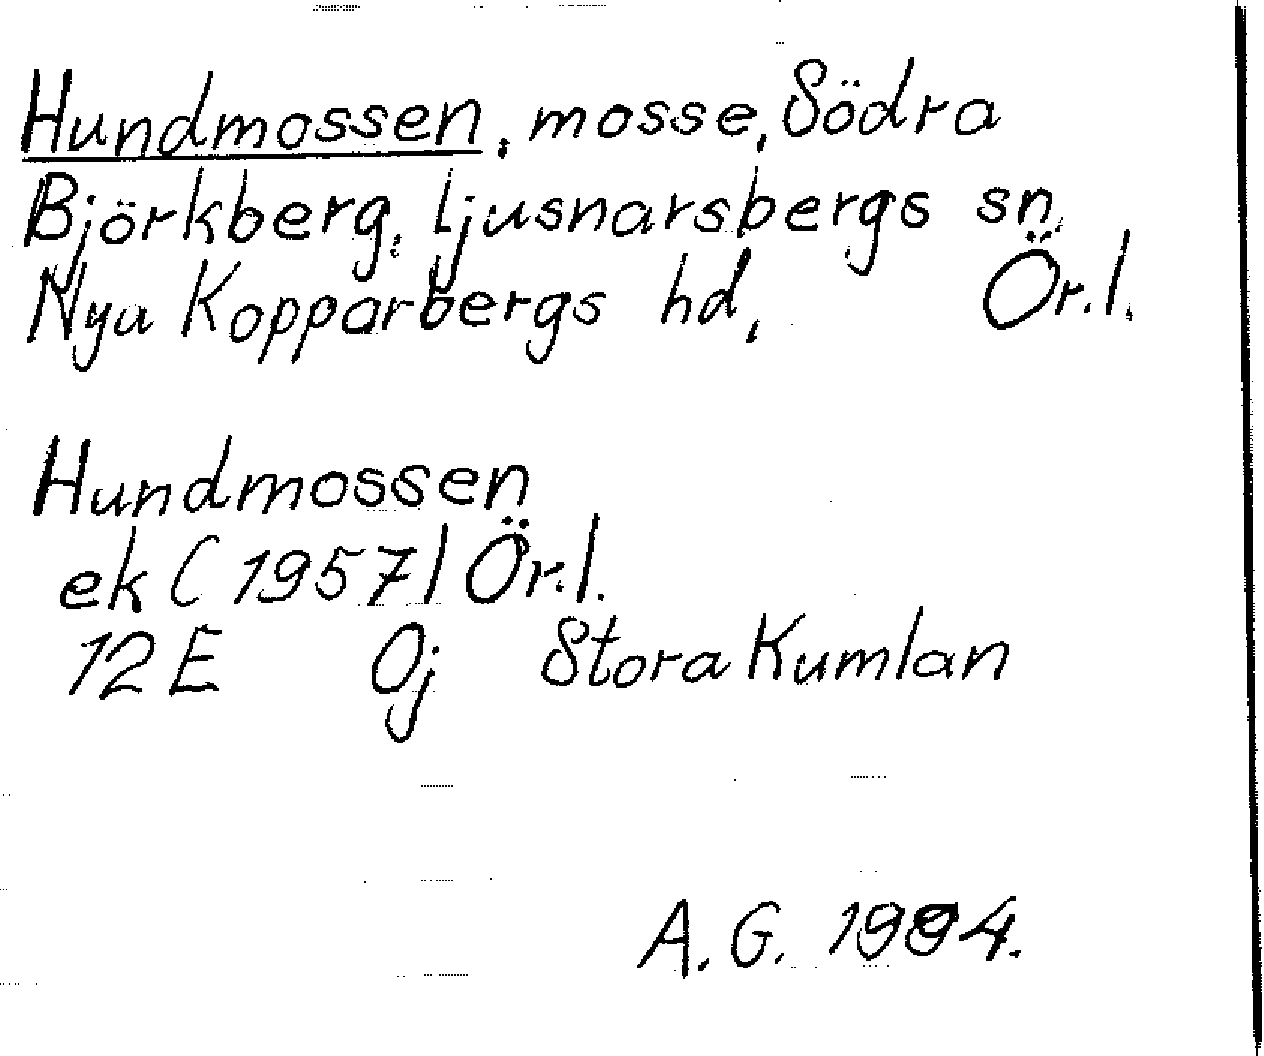 Hundmossen, mosse, Södra
Björkberg, Ljusnarsbergs sn,
Nya Kopparbergs hd, Ör.l.
Hundmossen
ek (1957) Ör.l.
12E 0j Stora Kumlan
A.G. 1994.